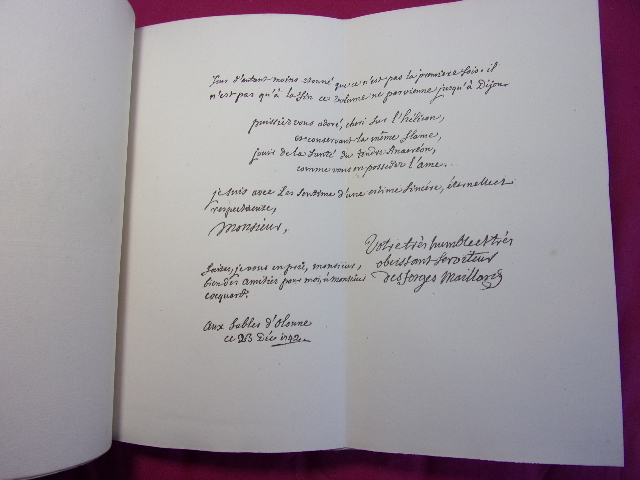 d'autant moins etonné que ce n'est pas la premiere fois. il
n'est pas qu'à la fin ce volume ne parvienne jusqu'à Dijon
puissiez vous adoré, cheri sur l'hélicon,
en conservant la même flame,
jouir de la santé du tendre Anacréon,
comme vous en posseder l'ame.
je suis avec les sentimens d'une estime sincère, éternelle et
respectueuse,
Monsieur,
Votre très humble et très
obeissant serviteur
desforges Maillard
faites, je vous en prie, monsieur,
bien des amitiés pour moi à monsieur
cocquard.
Aux Sables d'Olonne
ce 23 Déc 1742